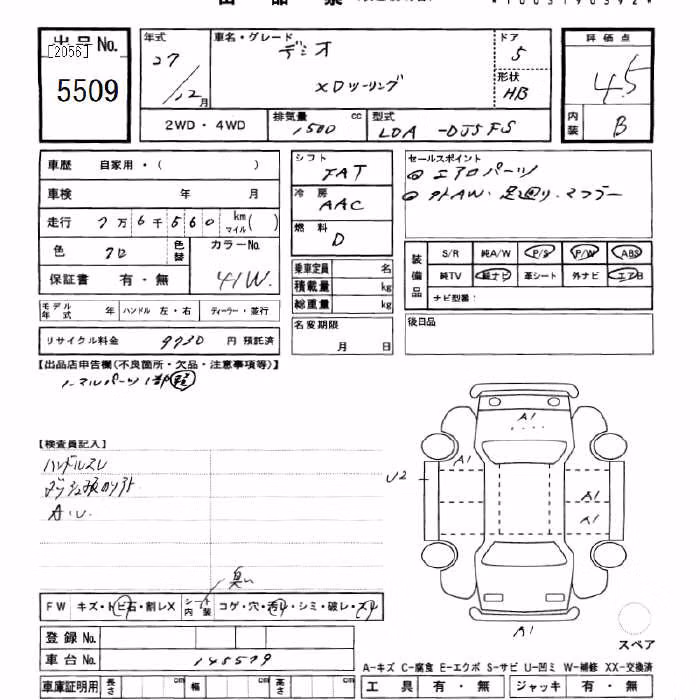 出品No.
[2056]
5509
年式
27
/12月
車名・グレード
デミオ
XDツーリング
ドア
5
形状
HB
評価点
4.5
内装
B
2WD・4WD
排気量
1500
cc
型式
LDA -DJ5FS
車歴 自家用・( )
車検 年 月
走行 7万6千560 km マイル( )
色
クロ
色替
カラーNo.
41W.
保証書 有・無
シフト
FAT
冷房
AAC
燃料
D
乗車定員 名
積載量 kg
総重量 kg
セールスポイント
◎ エアロパーツ
◎ 外AW. 足廻り. マフラー
装備品
S/R 純A/W P/S P/W ABS
純TV 純ナビ 革シート 外ナビ エアB
ナビ型番:
モデル年式 年 ハンドル 左・右 ディーラー・並行
リサイクル料金 9730 円 預託済
名変期限
月 日
後日品
【出品店申告欄(不良箇所・欠品・注意事項等)】
ノーマルパーツ1部
【検査員記入】
ハンドルスレ
A.U.
A1
A1
U2
A1
A1
A1
臭い
FW キズ・トビ石・割レX シート内装 コゲ・穴・汚レ・シミ・破レ・スレ
登録No.
車台No. 145579
車庫証明用 長さ cm 幅 cm 高さ cm
スペア
A-キズ C-腐食 E-エクボ S-サビ U-凹ミ W-補修 XX-交換済
工具 有・無 ジャッキ 有・無